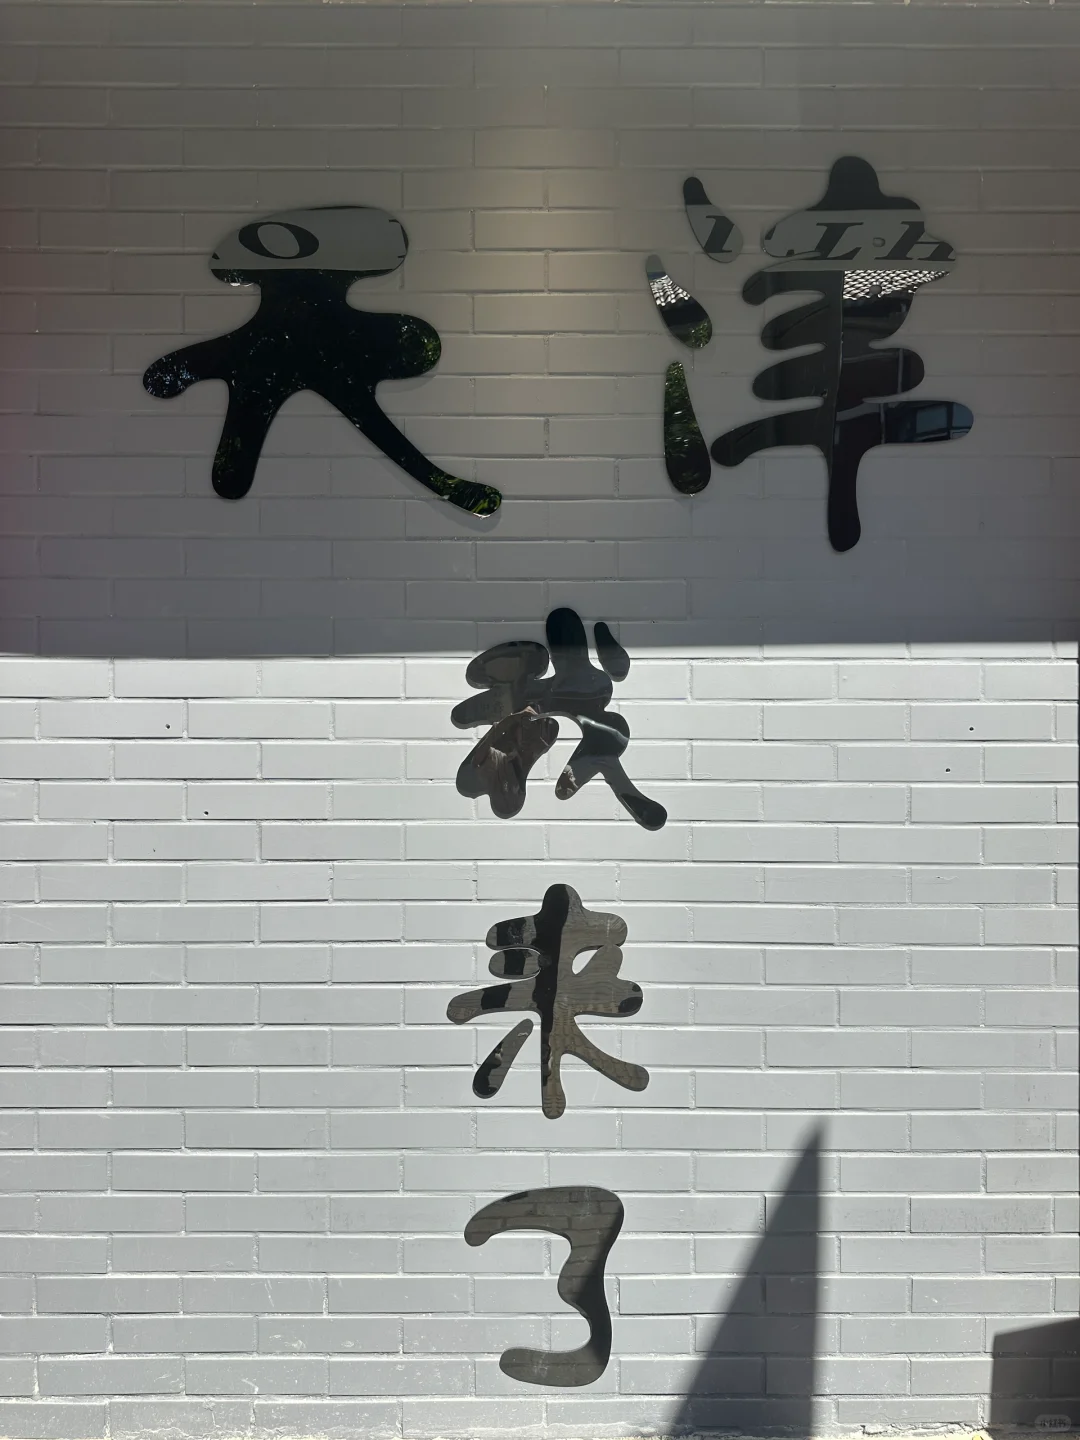 天津
我
来
了